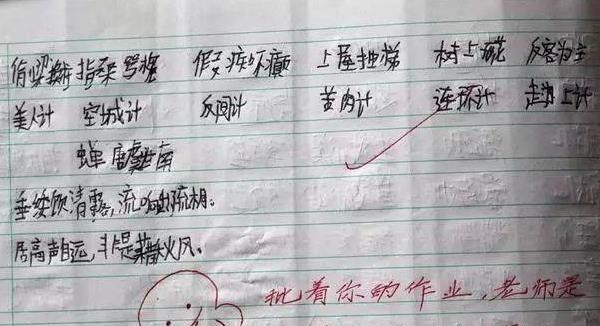 偷梁换柱 指桑骂槐 假痴不癫 上屋抽梯 树上开花 反客为主
美人计 空城计 反间计 苦肉计 连环计 走为上计
蝉 唐 虞世南
垂緌饮清露,流响出疏桐。
居高声自远,非是藉秋风。
批着你的作业,老师是